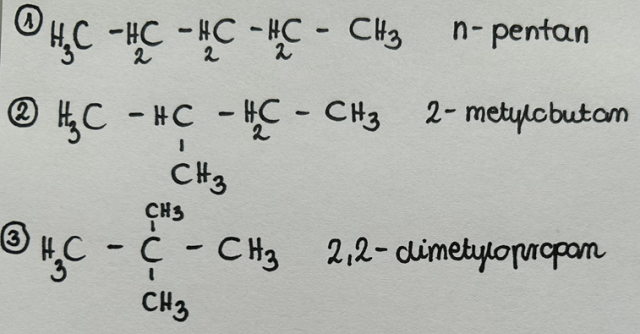 ① H₃C - H₂C - H₂C - H₂C - CH₃ n-pentan
② H₃C - HC - H₂C - CH₃ 2-metylobutan
CH₃
CH₃
③ H₃C - C - CH₃ 2,2-dimetylopropan
CH₃